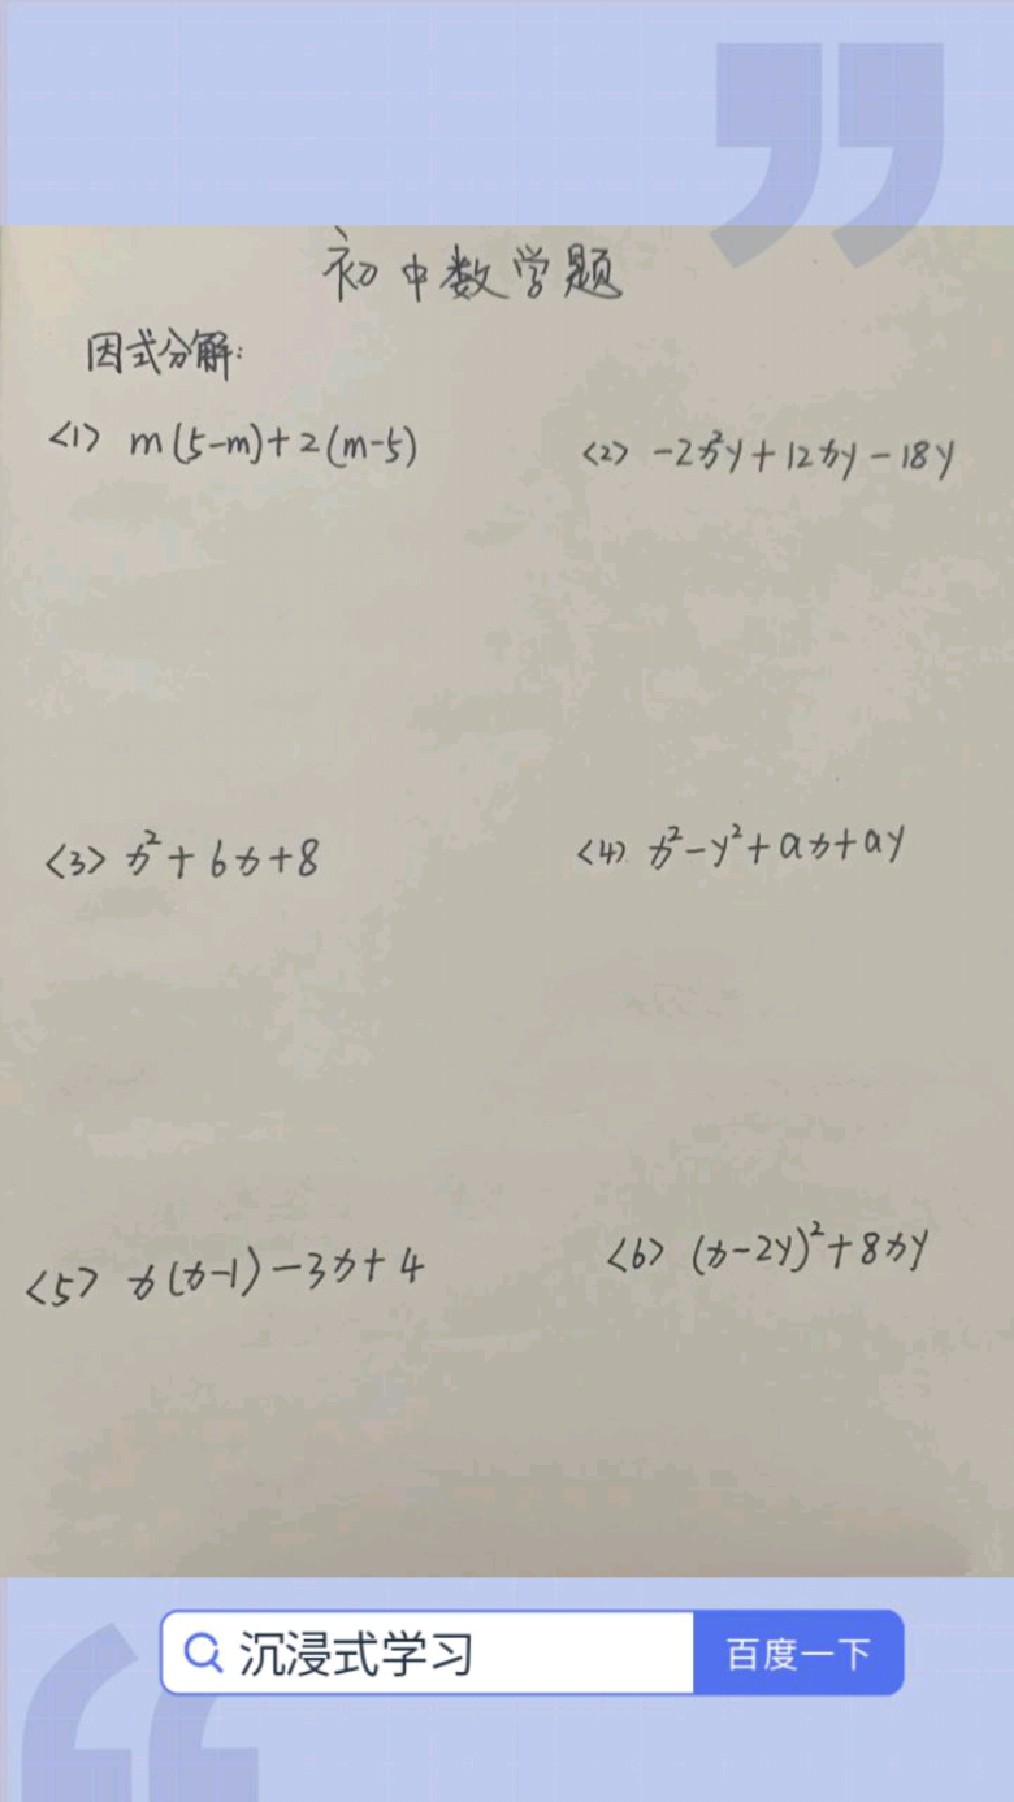 初中数学题
因式分解:
<1> m(5-m)+2(m-5)
<2> -2x²y+12xy-18y
<3> x²+6x+8
<4> x²-y²+ax+ay
<5> x(x-1)-3x+4
<6> (x-2y)²+8xy
沉浸式学习
百度一下